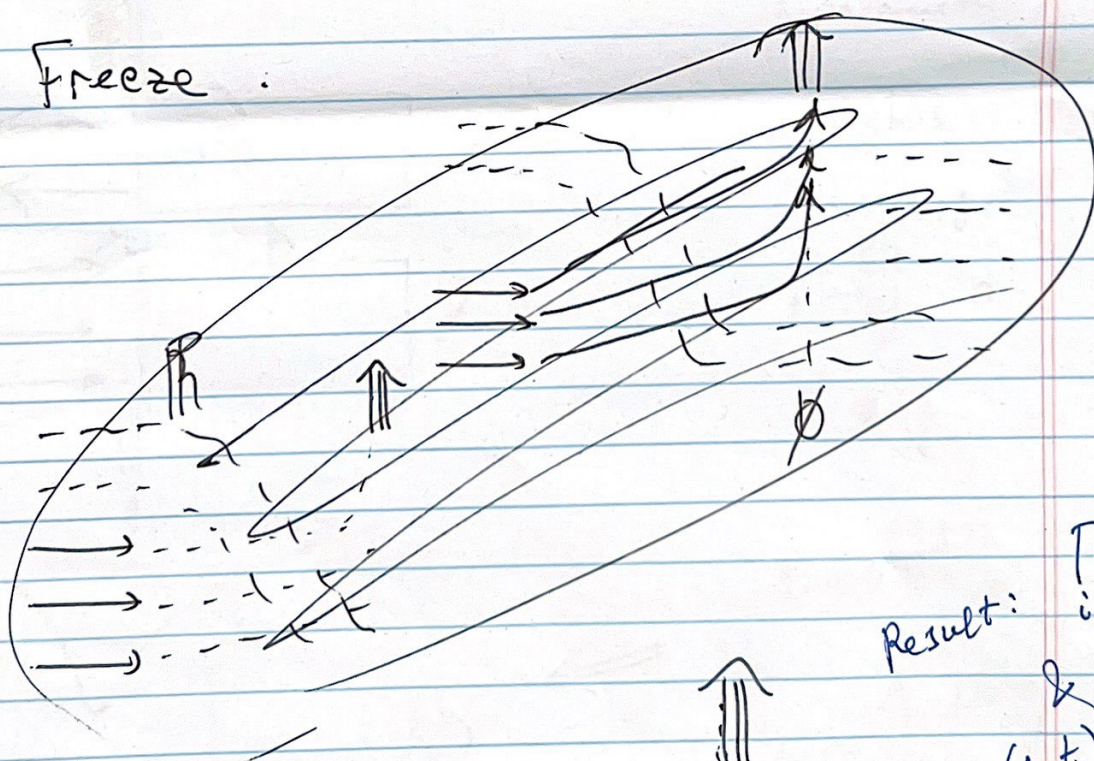 Freeze .
Ø
Result:
&